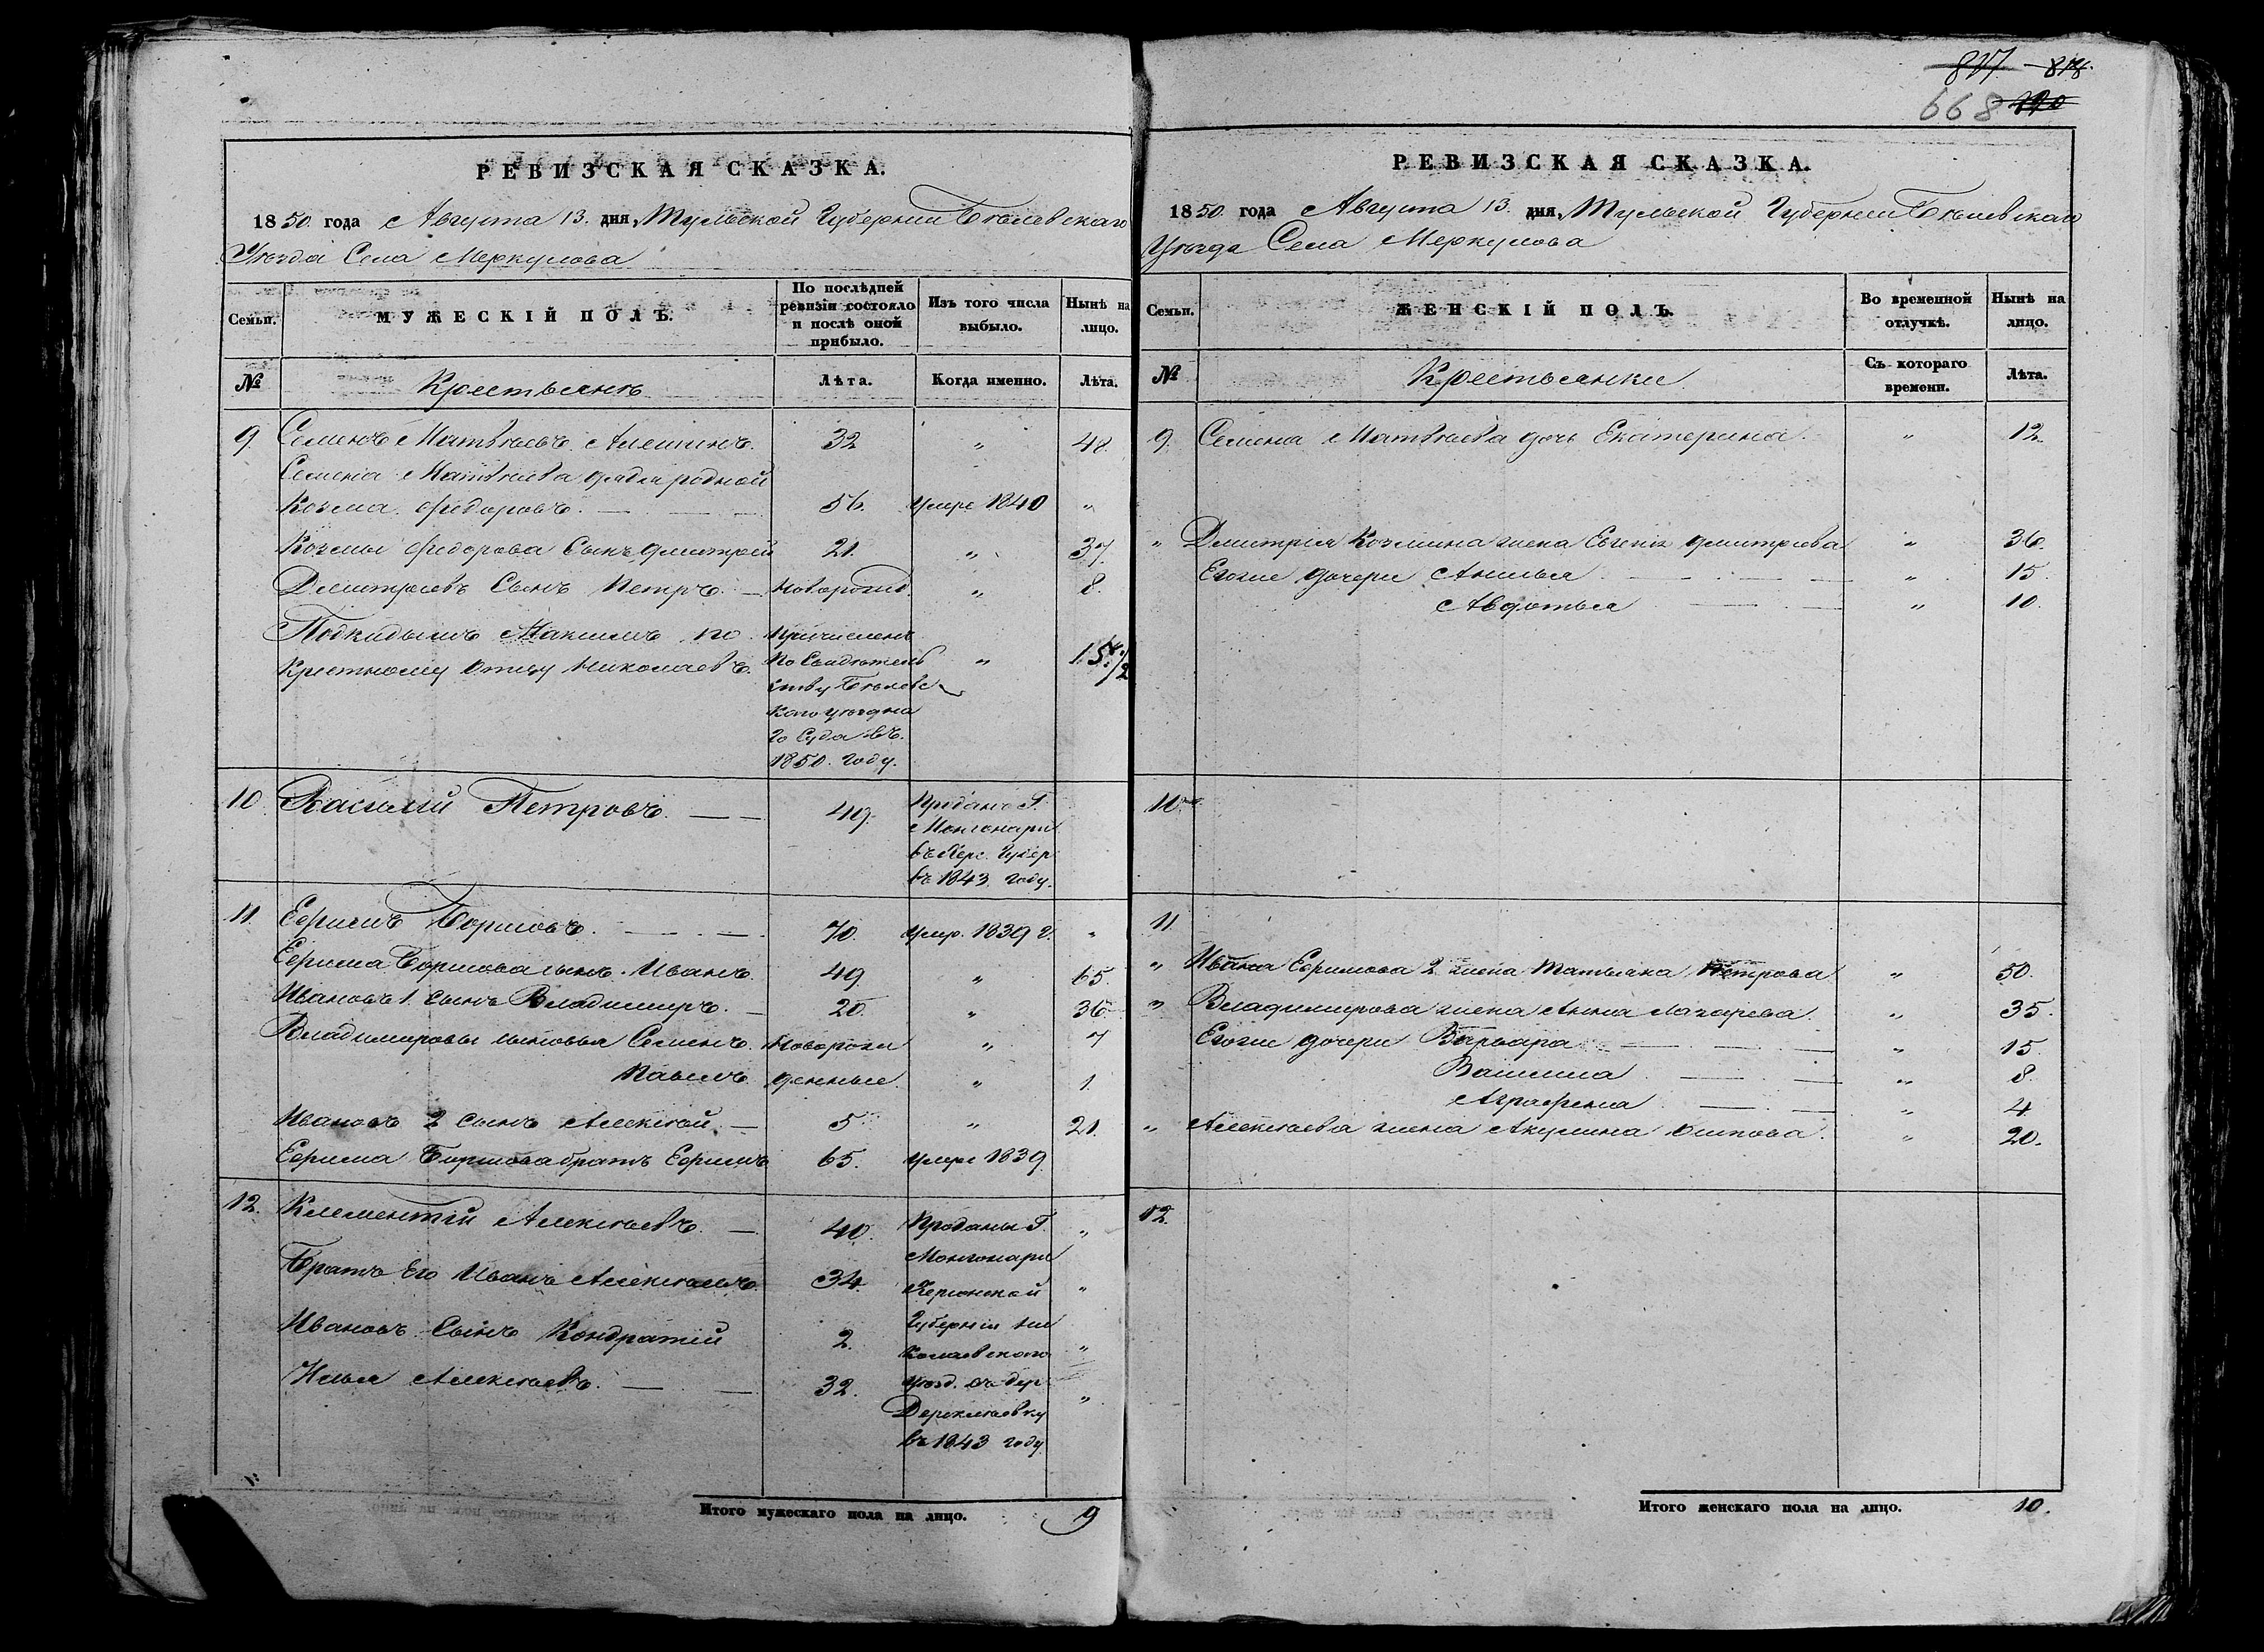 817 818
668 220
РЕВИЗСКАЯ СКАЗКА.
1850 года Августа 13. дня, Тульской Губернии Бѣлевскаго
Уѣзда Села Меркулова
Семьи.
МУЖЕСКІЙ ПОЛЪ.
По послѣдней
ревизіи состояло
и послѣ оной
прибыло.
Изъ того числа
выбыло.
Нынѣ на
лицо.
№
Крестьянъ
Лѣта.
Когда именно.
Лѣта.
9. Семенъ Матвѣевъ Алешинъ. 32 " 48.
Семена Матвѣева дядя родной
Козьма Федоровъ. 56. умре 1840 "
Козьмы Федорова Сынъ Дмитрей 21. " 37.
Дмитріевъ Сынъ Петръ. Новорожд. " 8.
Подкидышъ Максимъ по Причисленъ
Крестному отцу Николаевъ. По Свидѣтель " 1
ству Бѣлевс
каго уѣздна
го Суда въ
1850. году.
10. Василій Петровъ. 49. Проданъ Г.
въ Херс. Губер
въ 1843. году.
11. Ефимъ Борисовъ. 70. умр. 1839 г. "
Ефима Борисова сынъ Иванъ. 49 " 65.
Ивановъ 1. сынъ Владимиръ. 20. " 36
Владимировы сыновья Семенъ. Новорож " 7
Павелъ. денные. " 1.
Ивановъ 2 сынъ Алексѣй. 5 " 21.
Ефима Борисова братъ Ефимъ 65. умре 1839.
12. Клементій Алексѣевъ. 40. Проданы Г. "
Братъ Его Иванъ Алексѣевъ. 34. Херсонской "
Губерніи Ни
Ивановъ Сынъ Кондратій 2. колаевского "
Илья Алексѣевъ. 32. уѣзд. въ дер "
въ 1843 году
Итого мужескаго пола на лицо. 9
РЕВИЗСКАЯ СКАЗКА.
1850 года Августа 13. дня, Тульской Губернии Бѣлевскаго
Уѣзда Села Меркулова
Семьи.
ЖЕНСКІЙ ПОЛЪ.
Во временной
отлучкѣ.
Нынѣ на
лицо.
№
Крестьянки
Съ котораго
времени.
Лѣта.
9. Семена Матвѣева дочь Екатерина. " 12.
" Дмитрія Козьмина жена Евгенія Дмитріева " 36.
Егожъ дочери Анисья " 15.
Авдотья " 10.
10.
11.
" Ивана Ефимова 2 жена Татьяна Петрова " 50.
" Владимирова жена Анна Лазарева. " 35.
Егоже дочери Варвара " 15.
" 8.
Аграфена " 4.
" Алексѣева жена Акулина Осипова. " 20.
12.
Итого женскаго пола на лицо. 10.